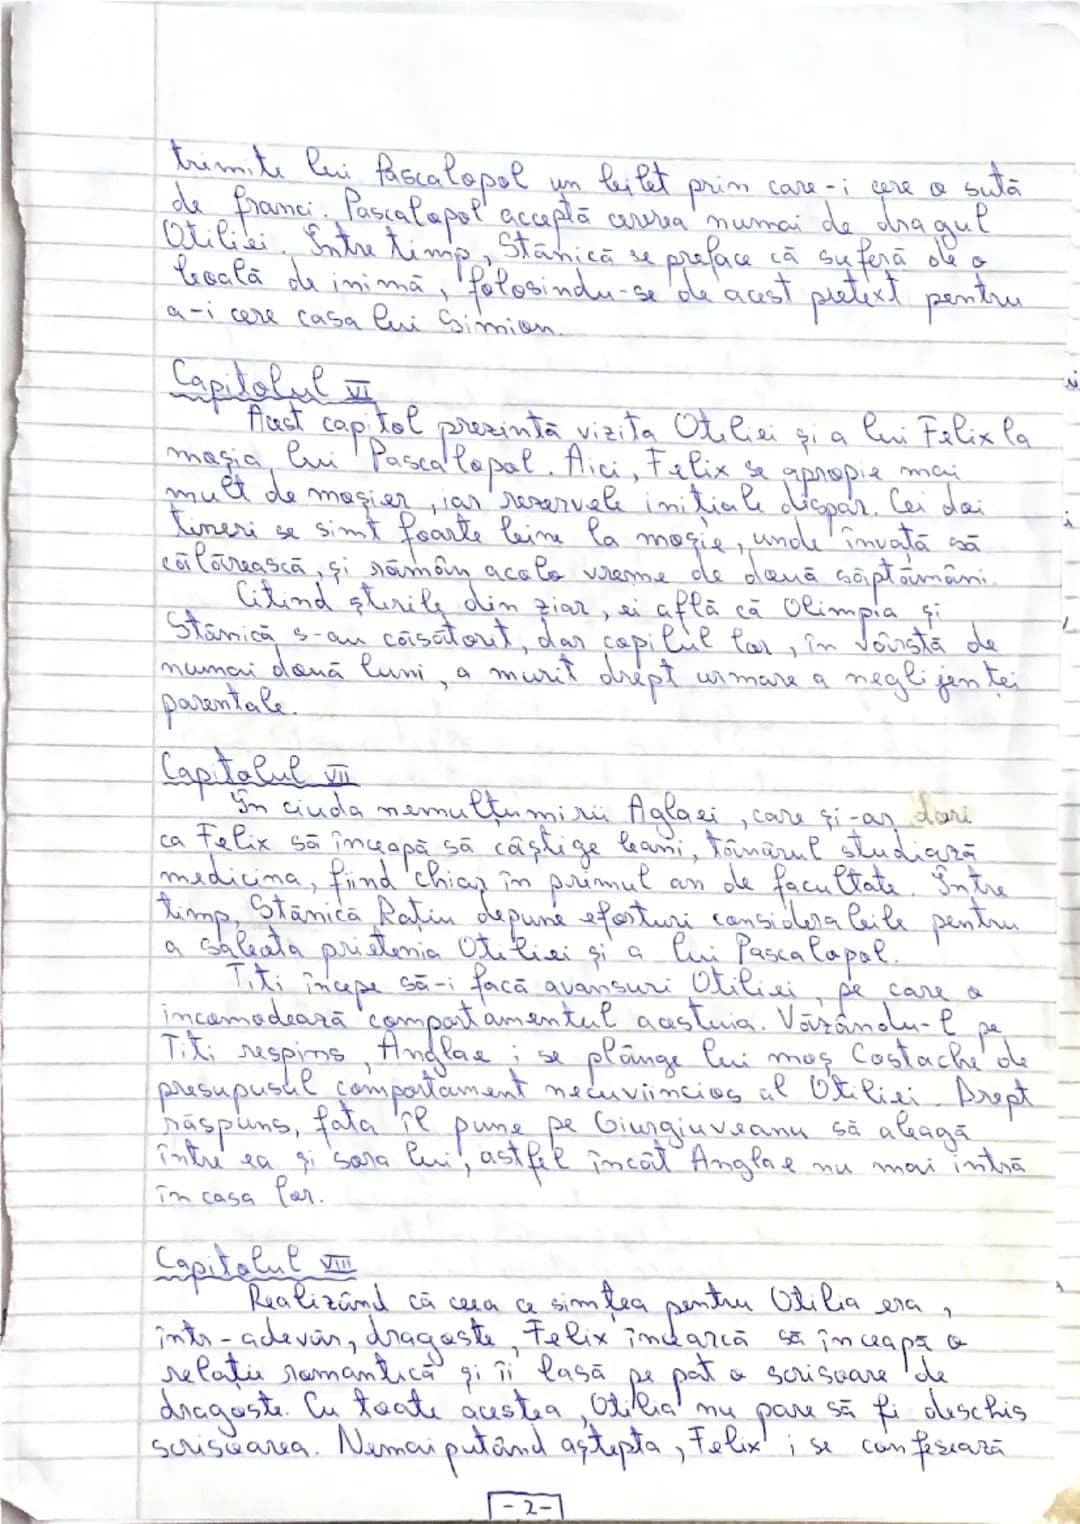 trimite lui Pascalopol un bilet prin care-i cere o sută
de franci. Pascalopol acceptă cererea numai de dragul
Otiliei. Între timp, Stănică se preface că suferă de o
boală de inimă, folosindu-se de acest pretext pentru
a-i cere casa lui Simion.
Capitolul VI
Acest capitol prezintă vizita Otiliei și a lui Felix la
moșia lui Pascalopol. Aici, Felix se apropie mai
mult de moșier, iar rezervele inițiale dispar. Cei doi
tineri se simt foarte bine la moșie, unde învață să
călărească, și rămân acolo vreme de două săptămâni.
Citind știrile din ziar, ei află că Olimpia și
Stănică s-au căsătorit, dar copilul lor, în vârstă de
numai două luni, a murit drept urmare a neglijenței
parentale.
Capitolul VII
În ciuda nemulțumirii Aglaei, care și-ar dori
ca Felix să înceapă să câștige bani, tânărul studiază
medicina, fiind chiar în primul an de facultate. Între
timp, Stănică Rațiu depune eforturi considerabile pentru
a sabota prietenia Otiliei și a lui Pascalopol.
Titi începe să-i facă avansuri Otiliei, pe care o
incomodează comportamentul acestuia. Văzându-l pe
Titi respins, Anglae i se plânge lui moș Costache de
presupusul comportament necuviincios al Otiliei. Drept
răspuns, fata îl pune pe Giurgiuveanu să aleagă
între ea și sora lui, astfel încât Anglae nu mai intră
în casa lor.
Capitolul VIII
Realizând că ceea ce simțea pentru Otilia era,
într-adevăr, dragoste, Felix încearcă să înceapă o
relație romantică și îi lasă pe pat o scrisoare de
dragoste. Cu toate acestea, Otilia nu pare să fi deschis
scrisoarea. Nemaiputând aștepta, Felix i se confesează
-2-